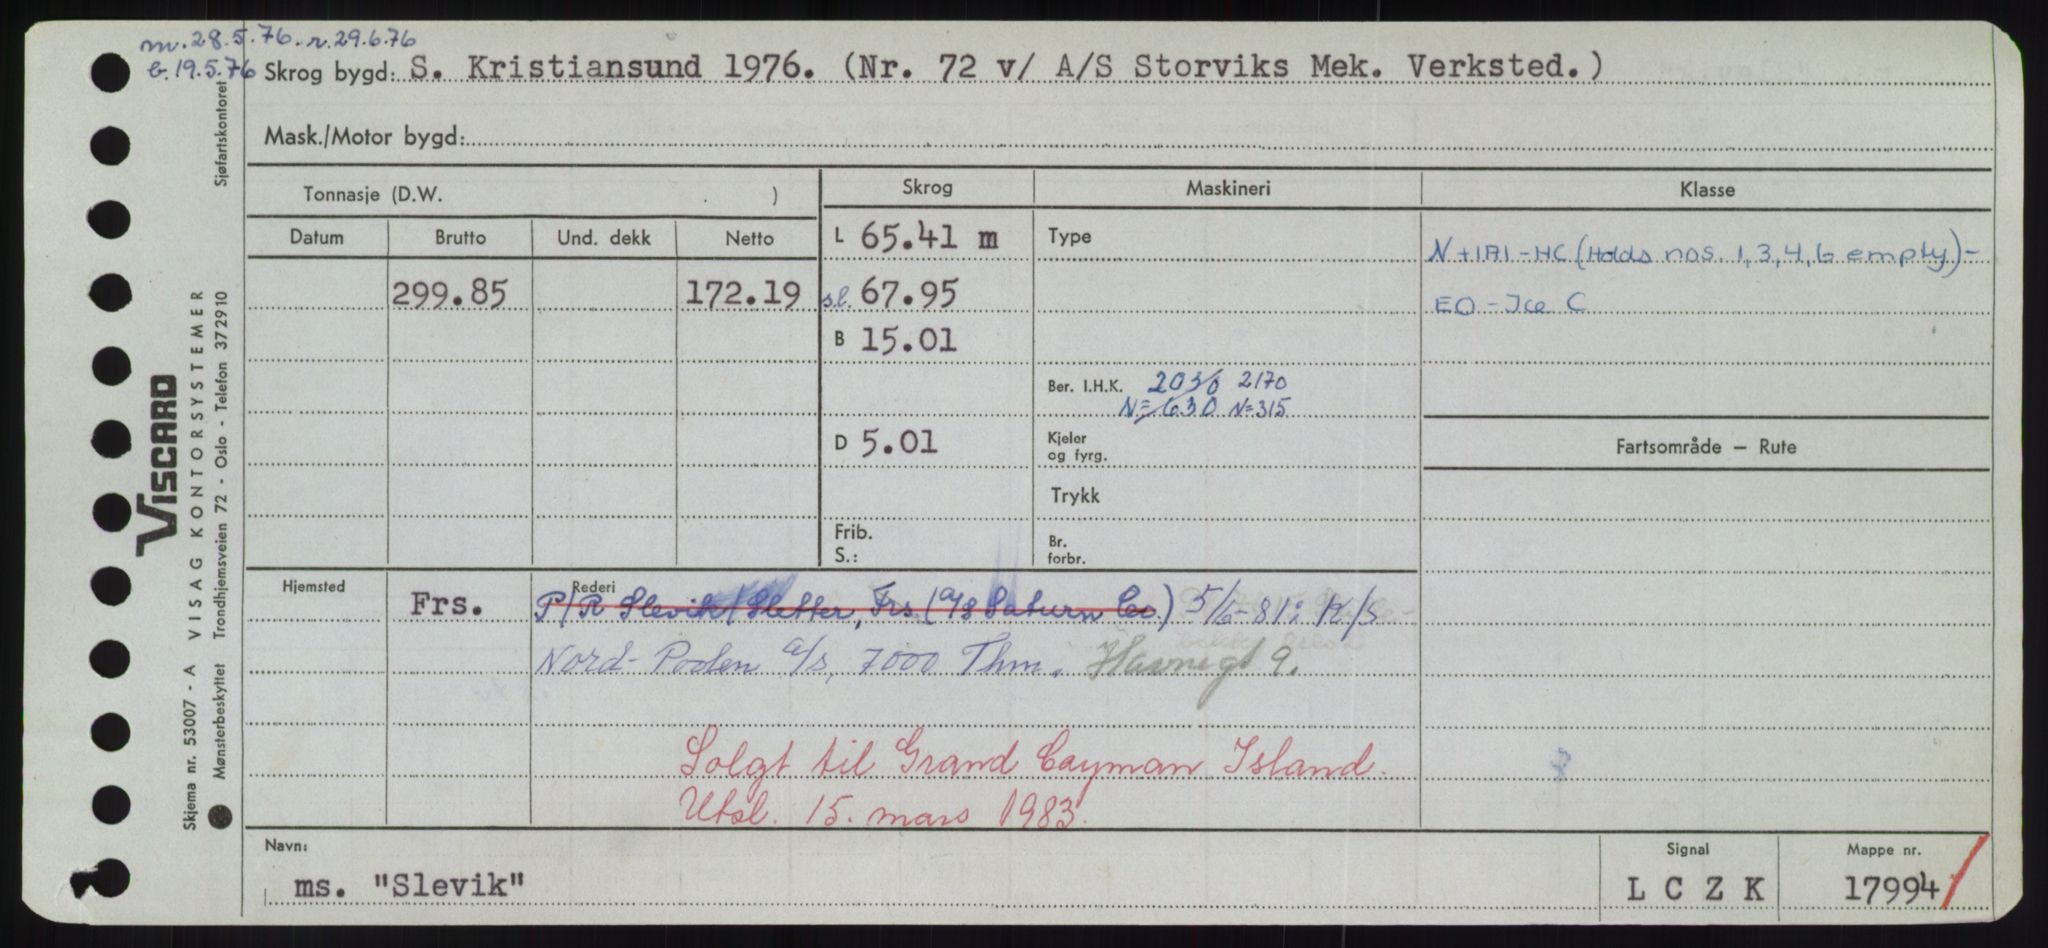 m. 28.5.76. r. 29.6.76
b. 19.5.76 Skrog bygd: S. Kristiansund 1976. (Nr. 72 v/ A/S Storviks Mek. Verksted.)
Mask./Motor bygd:
Tonnasje (D.W. )
Skrog
Maskineri
Klasse
Datum Brutto Und. dekk Netto
299.85 172.19
L 65.41 m
s.l. 67.95
B 15.01
D 5.01
Frib.
S.:
Type
Ber. I.H.K. 2030 2170
N=630 N=315
Kjeler
og fyrg.
Trykk
Br.
forbr.
N+1A1-HC (Holds nos. 1,3,4,6 empty)-
EO-Ice C
Fartsområde – Rute
Hjemsted Frs.
Rederi
P/R Slevik/Sletter, Frs (A/S Saturn Co.) 5/6-81: K/S
Nord-Poolen A/S, 7000 Thm. Havnegt 9.
Solgt til Grand Cayman Island.
Utsl. 15. mars 1983.
Navn:
ms. "Slevik"
Signal
L C Z K
Mappe nr.
17994
VISCARD
Skjema nr. 53007 - A VISAG KONTORSYSTEMER
Mønsterbeskyttet Trondhjemsveien 72 - Oslo - Telefon 372910
Sjøfartskontoret